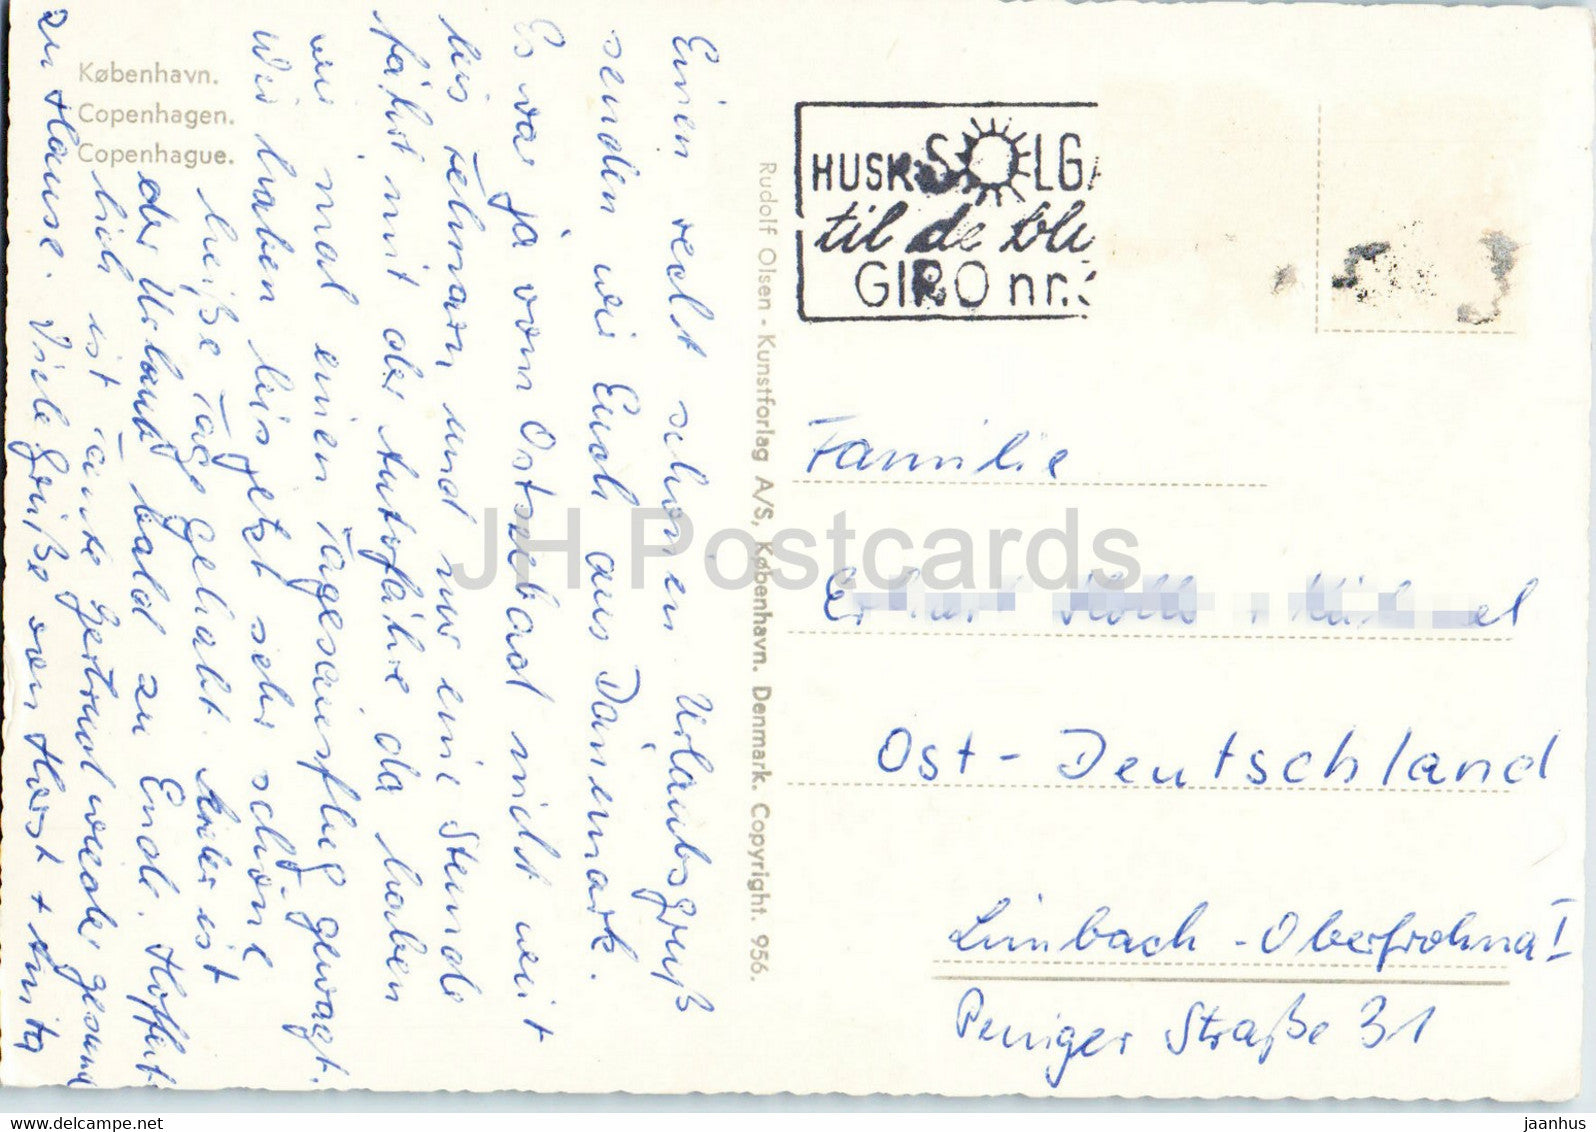 København.
Copenhagen.
Copenhague.
Einen recht schönen Urlaubsgruß
senden wir Euch aus Dänemark.
Es war ja vom Ostseebad nicht weit
bis Fehmarn und nur eine Stunde
fährt mit der Autofähre da haben
wir mal einen Tagesausflug gewagt.
Wir haben bis jetzt sehr schöne
heiße Tage gehabt. Leider ist
der Urlaub bald zu Ende. Hoffent
lich ist Tante Gertrud wieder gesund
zu Hause. Viele Grüße von Horst + Anita
Rudolf Olsen - Kunstforlag A/S, København. Denmark. Copyright. 956.
HUSK SOLGA
til de bli
GIRO nr.
Familie
Ost-Deutschland
Limbach-Oberfrohna I
Peniger Straße 31
JH Postcards
www.delcampe.net
jaanhus